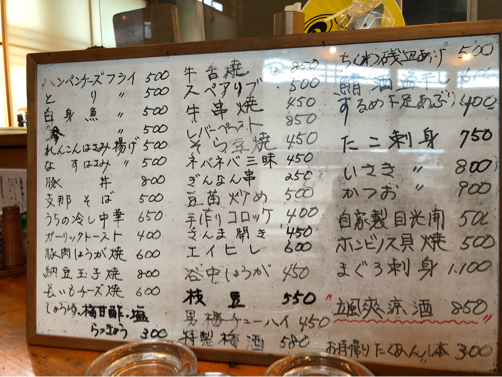 ハンペンチーズフライ 500
とり 〃 500
白身魚 〃 500
〃 500
れんこんはさみ揚げ 500
なすはさみ 〃 500
豚丼 800
支那そば 500
うちの冷し中華 650
ガーリックトースト 400
豚肉しょうが焼 600
納豆玉子焼 800
長いもチーズ焼 600
しょうゆ・梅甘酢・塩
らっきょう 300
牛舌焼 250
スペアリブ 500
牛串焼 450
レバーペースト 850
そら豆焼 450
ネバネバ三昧 450
ぎんなん串 250
豆苗炒め 500
手作りコロッケ 400
さんま開き 450
エイヒレ 600
谷中しょうが 450
枝豆 550
男梅チューハイ 450
特製梅酒 580
ちくわ磯辺あげ 500
鯖酒盗干し
するめ下足あぶり 400
たこ刺身 750
いさき 〃 800
かつお 〃 900
自家製目光開 500
ホンビノス貝焼 500
まぐろ刺身 1,100
颯爽涼酒 850
お持帰りたくあん1本 300